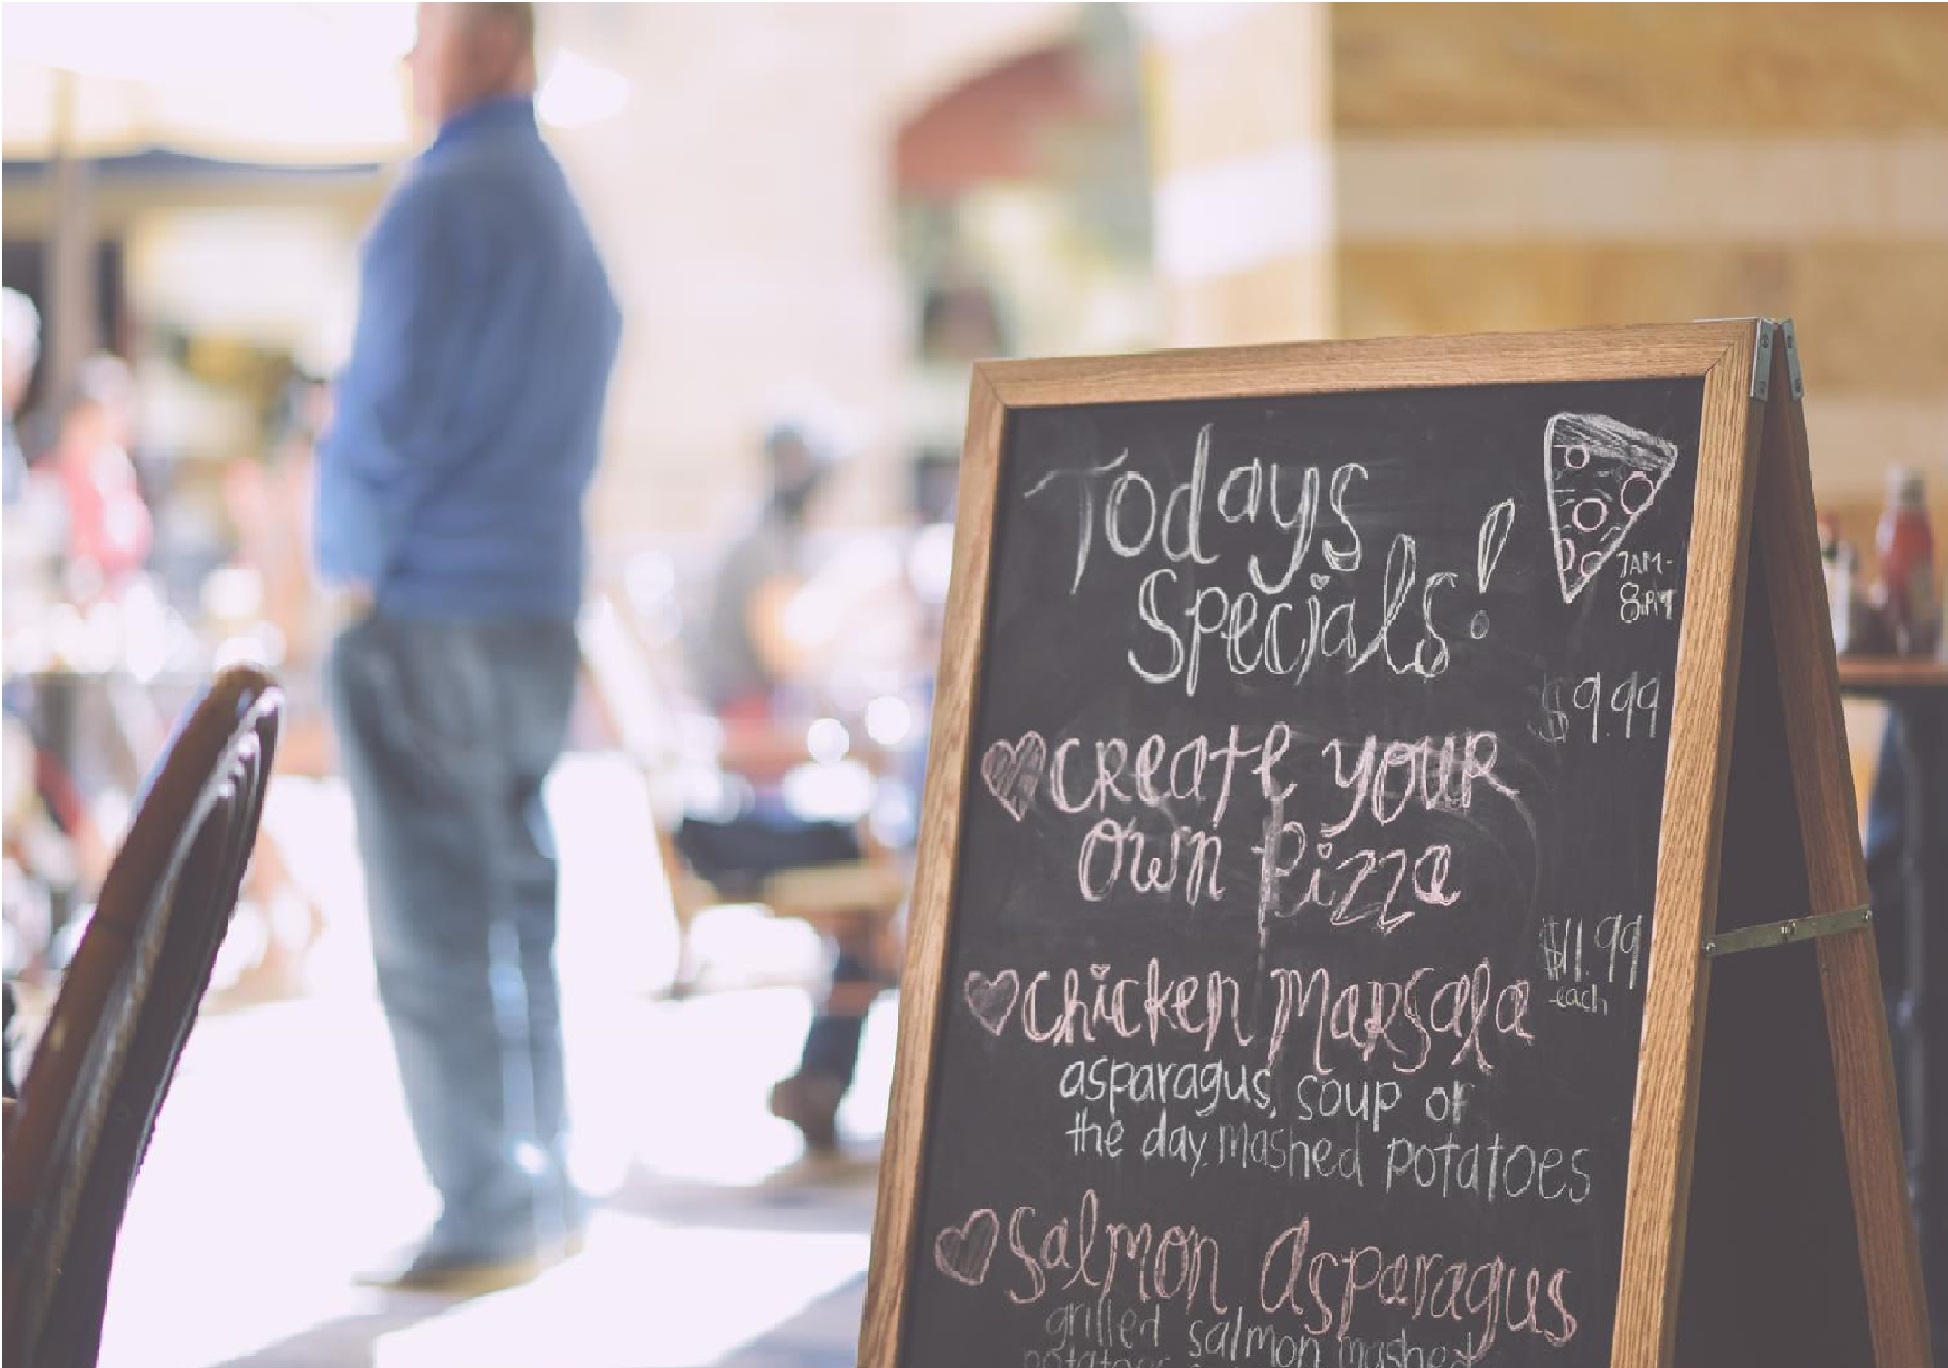 Todays
Specials!
7AM-
8PM
$9.99
create your
own Pizza
$11.99
each
Chicken Marsala
asparagus, soup of
the day, mashed potatoes
Salmon Asparagus
grilled salmon mashed
potatoes